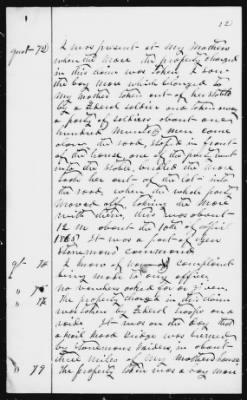 12
quest 72 I was present at my Mothers
when the mare the property charged
in this claim was taken, I saw
the bay mare which belonged to
my mother taken out of her stable
by a Federal soldier and taken away
a party of soldiers about one
hundred mounted men came
along the road, stopd in front
of the house, one of the party went
into the stable, bridled the mare
took her out of the lot into
the road, where the whole party
moved off taking the mare
with them, this was about
12 m about the 10th of april
1865. It was a part of Gen
Stonemans Command
qt 74 I know of no complaint
being made to any officer
" 75 no vouchers asked for or given
" 77 The property charged in this claim
was taken by Federal troops on a
raid. It was on the day that
a Rail Road Bridge was burned
by Stonemans Raiders, in about
three miles of my mothers house
" 79 The property taken was a bay mare